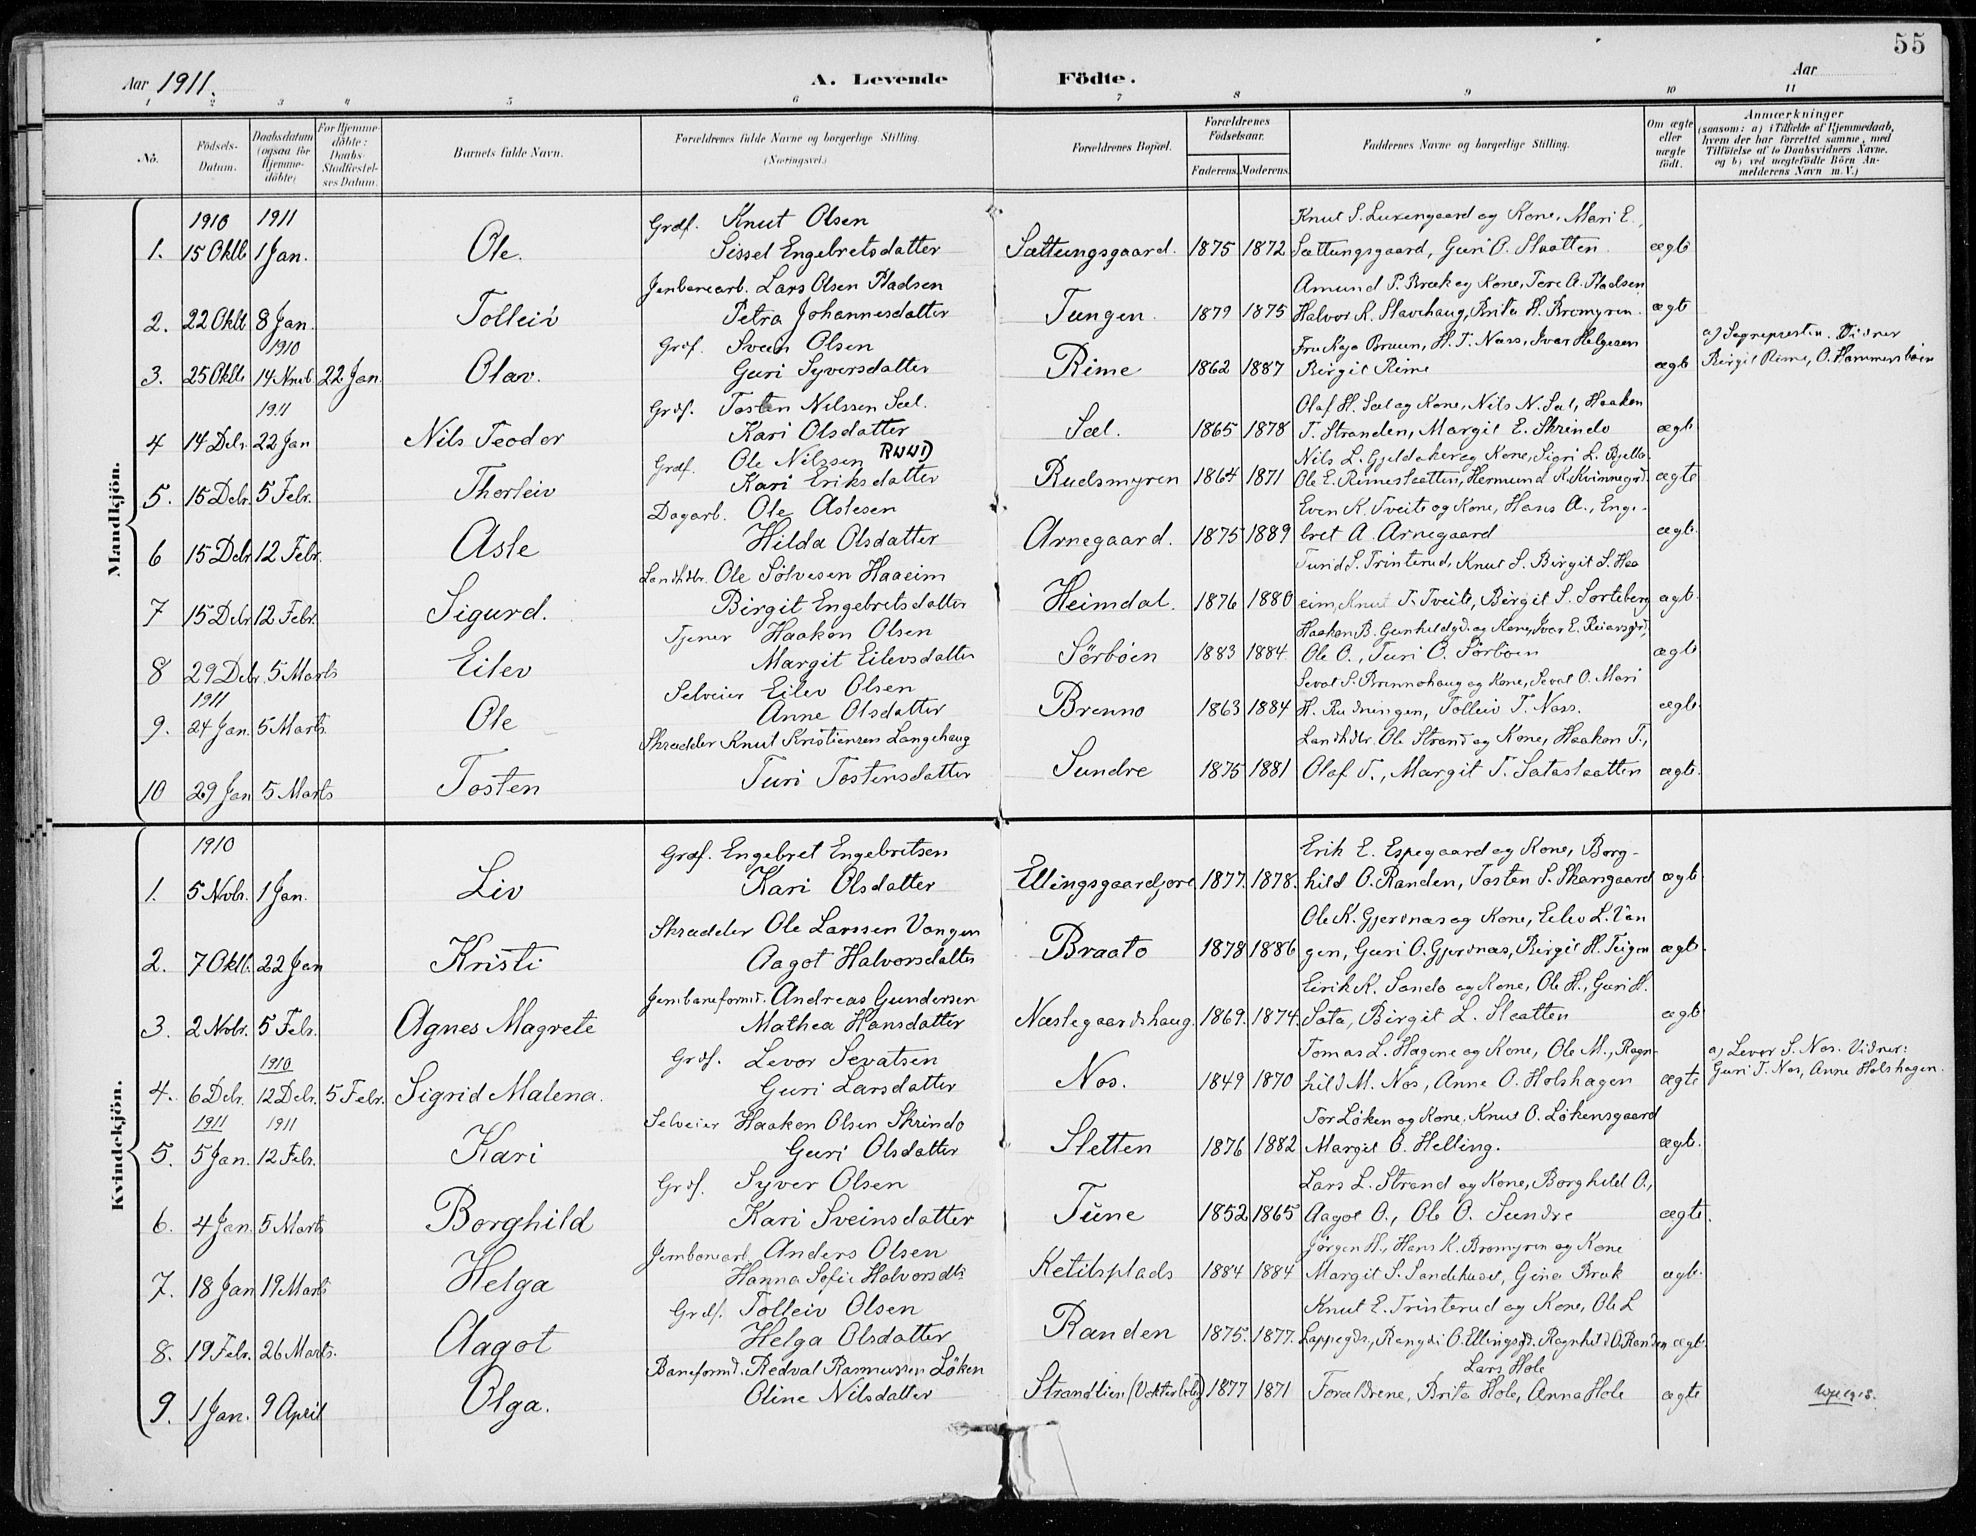 55
Aar 1911. A. Levende Födte. Aar
1 2 3 4 5 6 7 8 9 10 11
No. Födsels-Datum. Daabsdatum (ogsaa for Hjemme-döbte) For Hjemme-döbte: Daabs-Stadfæstel-ses Datum. Barnets fulde Navn. Forældrenes fulde Navne og borgerlige Stilling. (Næringsvei.) Forældrenes Bopæl. Forældrenes Födselsaar. Faderens. Moderens. Faddernes Navne og borgerlige Stilling. Om ægte eller uægte födt. Anmærkninger (saasom: a) i Tilfælde af Hjemmedaab, hvem der har forrettet samme, med Tilföielse af to Daabsvidners Navne, og b) ved uægtefödte Börn An-melderens Navn m. V.)
Mandkjön.
1910 1911 Grdf. Knut Olsen Knut S. Luxengaard og Kone, Mari E.,
1. 15 Oktb 1 Jan. Ole. Sissel Engebretsdatter Sættungsgaard. 1875 1872 Sættungsgaard, Guri O. Slaatten ægte
Jernbanearb. Lars Olsen Pladsen Amund P. Bræk og Kone, Tore A. Pladsen
2. 22 Oktb 8 Jan. Tolleiv Petra Johannesdatter Tungen. 1879 1875 Halvor K. Slavehaug, Brita H. Bromyren. ægt
1910 Grdf. Svein Olsen Fru Kaja Bruun, H. T. Næss, Ivar Helgesen a) Sogrepresten. Vidner
3. 25 Oktb 14 Novb. 22 Jan. Olav. Guri Syversdatter Rime 1862 1887 Birgit Rime ægte Birgit Rime, O. Hammersbøen
1911 Grdf. Tosten Nilssen Sæl. Olaf H. Sæl og Kone, Nils N. Sæl, Haaken
4 14 Debr. 22 Jan Nils Teodor Kari Olsdatter Sæl. 1865 1878 T. Stranden, Margit E. Skrindo ægte
Grdf. Ole Nilssen RUUD Nils L. Gjeldaker og Kone, Sigri L. Bjella
5. 15 Debr. 5 Febr. Thorleiv Kari Eriksdatter Rudsmyren 1864 1871 Ole E. Rimeslaatten, Hermund K. Kvinnegrd. ægte
Dagarb. Ole Aslesen Even K. Tveito og Kone, Hans A., Enge-
6 15 Debr 12 Febr. Asle Hilda Olsdatter Arnegaard. 1875 1889 bret A. Arnegaard ægte
Landhdlr. Ole Sölvesen Haaeim Turid S. Trinterud, Knut S. Birgit S. Haa
7 15 Debr 12 Febr. Sigurd. Birgit Engebretsdatter Heimdal. 1876 1880 eim, Knut T. Tveito, Birgit S. Sorteberg ægt.
Tjener Haakon Olsen Haakon B. Gunhildgd. og Kone, Ivar E. Reiarsgrd,
8 29 Debr. 5 Marts Eilev Margit Eilevsdatter Sörböen 1883 1884 Ole O., Turi O. Sörböen ægte
1911 Selveier Eilev Olsen Sevat S. Brennohaug og Kone, Sevat O. Mari
9. 24 Jan. 5 Marts. Ole Anne Olsdatter Brenno 1863 1884 H. Rudningen, Tolleiv T. Næss. ægte
Skrædder Knut Kristiansen Langehaug Landhdlr. Ole Strand og Kone, Haakon T.,
10 29 Jan 5 Marts Tosten Turi Tostensdatter Sundre 1875 1881 Olaf T., Margit T. Sataslaatten ægte.
Kvindekjön.
1910 Grdf. Engebret Engebretsen Erik E. Espegaard og Kone, Borg-
1. 5 Novbr. 1 Jan. Liv Kari Olsdatter Ellingsgaardjore 1877. 1878. hild O. Randen, Tosten S. Skarsgaard ægte.
Skrædder Ole Larssen Vangen Ole K. Gjerdnæs og Kone, Eilev L. Van
2. 7 Oktb. 22 Jan Kristi Aagot Halvorsdatter Braato 1878 1886 gen, Guri O. Gjerdnæs, Birgit H. Teigen ægte.
Jernbaneformd. Andreas Gundersen Eirik K. Sando og Kone, Ole H., Guri H.
3. 2 Novbr. 5 Febr. Agnes Magrete Mathea Hansdatter Næstegaardshaug. 1869. 1874. Sata, Birgit L. Slaatten ægte
1910 Grdf. Levor Sevatsen Tomas L. Hagene og Kone, Ole M., Ragn- a) Levor S. Nos. Vidner:
4. 6 Debr. 12 Debr. 5 Febr. Sigrid Malena. Guri Larsdatter Nos. 1849 1870 hild M. Nos, Anne O. Holshagen ægte Guri T. Nos, Anne Holshagen.
1911 1911 Selveier Haakon Olsen Skrindo Tor Löken og Kone, Knut O. Lökensgaard
5. 5 Jan. 12 Febr. Kari Guri Olsdatter Sletten 1876 1882 Margit O. Helling. ægte.
Grdf. Syver Olsen Lars L. Strand og Kone, Borghild O.,
6. 4 Jan. 5 Marts Borghild Kari Sveinsdatter Tune 1852 1865 Aagot O., Ole O. Sundre ægte.
Jernbanearb. Anders Olsen Jörgen H., Hans K. Bromyren og Kone
7. 18 Jan 19 Marts Helga Hanna Sofie Halvorsdtr Ketilsplads 1884 1884 Margit S. Sandehuset, Gina Bræk ægte.
Grdf. Tolleiv Olsen Knut E. Trinterud og Kone, Ole L
8. 19 Febr. 26 Marts. Aagot Helga Olsdatter Randen 1875. 1877. Lappegrd., Rangdi O. Ellingsgrd. Ragnhild O. Randen ægte.
Baneformd. Redval Rasmussen Löken Lars Hole
9. 1 Jan. 9 April Olga. Oline Nilsdatter Strandlien (Vokterbolig) 1877 1871 Forældrene, Brita Hole, Anna Hole ægte